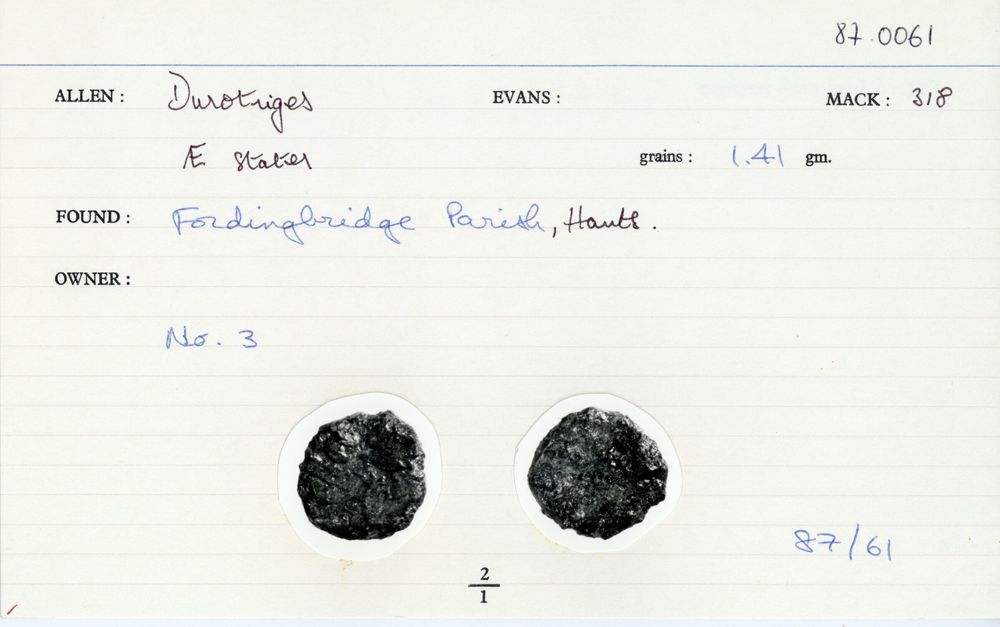 87.0061
ALLEN : Durotriges EVANS : MACK : 318
Æ Stater grains : 1.41 gm.
FOUND : Fordingbridge Parish, Hants.
OWNER :
No. 3
87/61
2
1